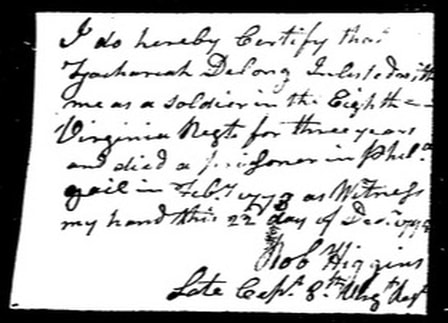 I do hereby Certify that
Zachariah Delong Inlisted with
me as a Soldier in the Eighth
Virginia Regt for three years
and died a prisoner in Phila
gail in Feby 1778 as Witness
my hand this 22 day of Decr
Rob Higgins
Late Capt. 8th Virga Regt